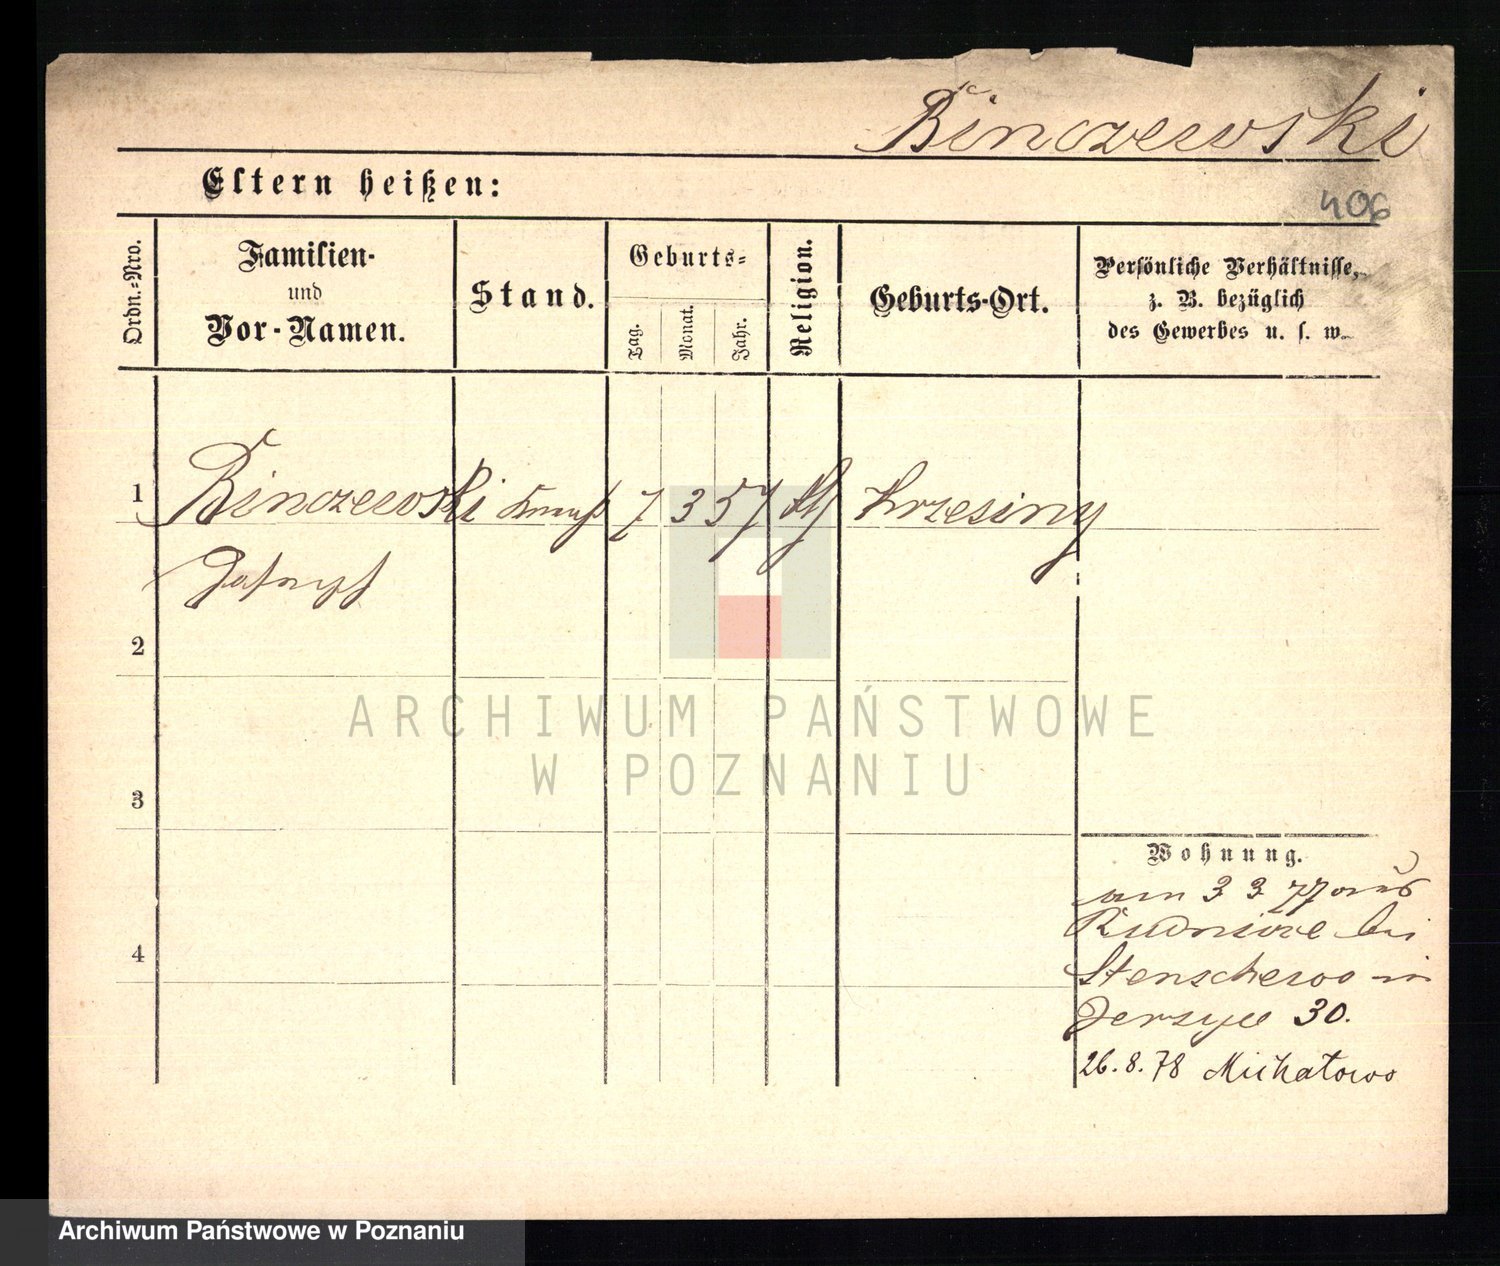 Binczewski
Eltern heißen:
406
Ordn.-Nro.
Familien-
und
Vor-Namen.
Stand.
Geburts-
Tag.
Monat.
Jahr.
Religion.
Geburts-Ort.
Persönliche Verhältnisse,
z. B. bezüglich
des Gewerbes u. s. w.
1 Binczewski 7 3 57 Krzesiny
2
3
4
ARCHIWUM PAŃSTWOWE
W POZNANIU
Wohnung.
am 3 3 77 aus
bei
Stenschewo in
Jersyce 30.
26. 8. 78 Michałowo
Archiwum Państwowe w Poznaniu